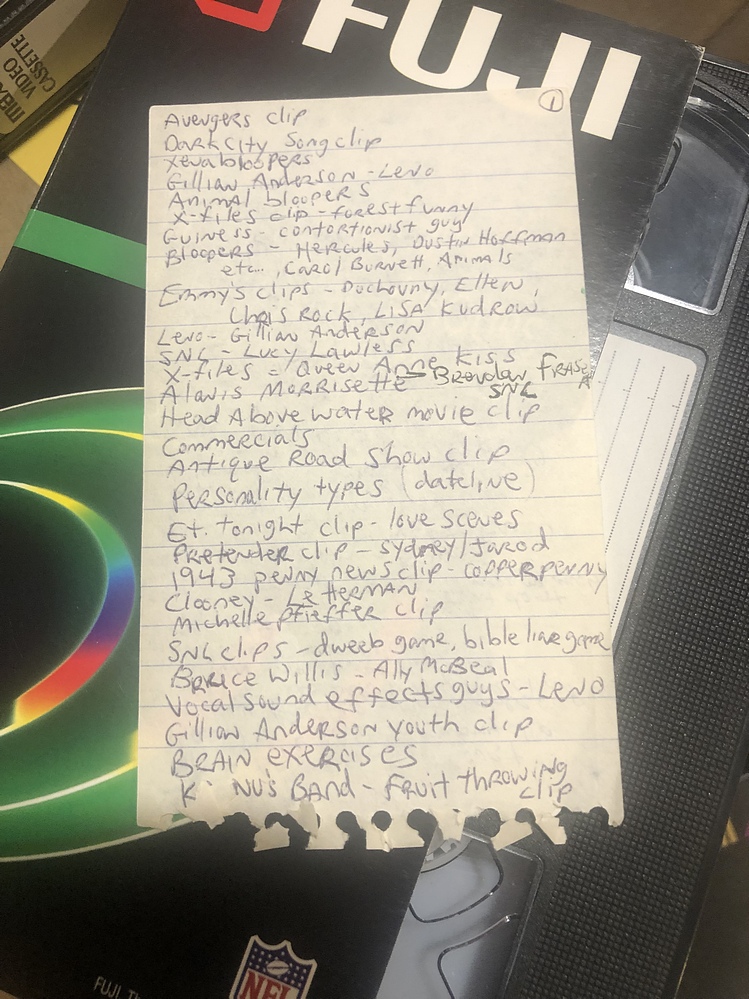 maxell
VIDEO
CASSETTE
FUJI
1
Avengers clip
Dark City Song clip
Xena bloopers
Gillian Anderson - Leno
Animal bloopers
X-files clip - forest funny
Guiness - contortionist guy
Bloopers - Hercules, Dustin Hoffman
etc..., Carol Burnett, Animals
Emmy's clips - Duchovny, Ellen,
Chris Rock, Lisa Kudrow
Leno - Gillian Anderson
SNL - Lucy Lawless
X-files - Queen Anne kiss
Alanis Morrisette - Brendan Frasier
SNL
Head Above water movie clip
Commercials
Antique Road Show clip
Personality types (dateline)
Et. Tonight clip - love scenes
Pretender clip - Sydney/Jarod
1943 penny news clip - copper penny
Clooney - Letterman
Michelle Pfieffer clip
SNL clips - dweeb game, bible line game
Bruce Willis - Ally McBeal
Vocal sound effects guys - Leno
Gillian Anderson youth clip
Brain exercises
Band - Fruit throwing
clip
FUJI
NFL